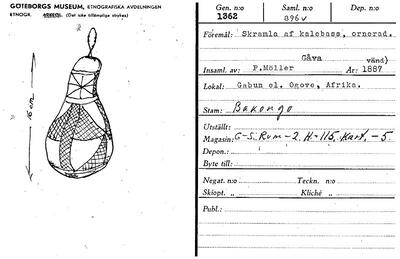 GÖTEBORGS MUSEUM, ETNOGRAFISKA AVDELNINGEN
ETNOGR. ARKEOL. (Det icke tillämpliga strykes)
16 cm
Gen. n:o Saml. n:o Dep. n:o
1362 896 v
Föremål: Skramla af kalebass, ornerad.
Gåva
vänd)
Insaml. av: P.Möller År: 1887
Lokal: Gabun el. Ogove, Afrika.
Stam: Bakongo
Utställt:
Magasin: G-S. Rum-2. H-115. Kart. -5
Depon.:
Byte till:
Negat. n:o Teckn. n:o
Skiopt. „ Kliché „
Publ.: